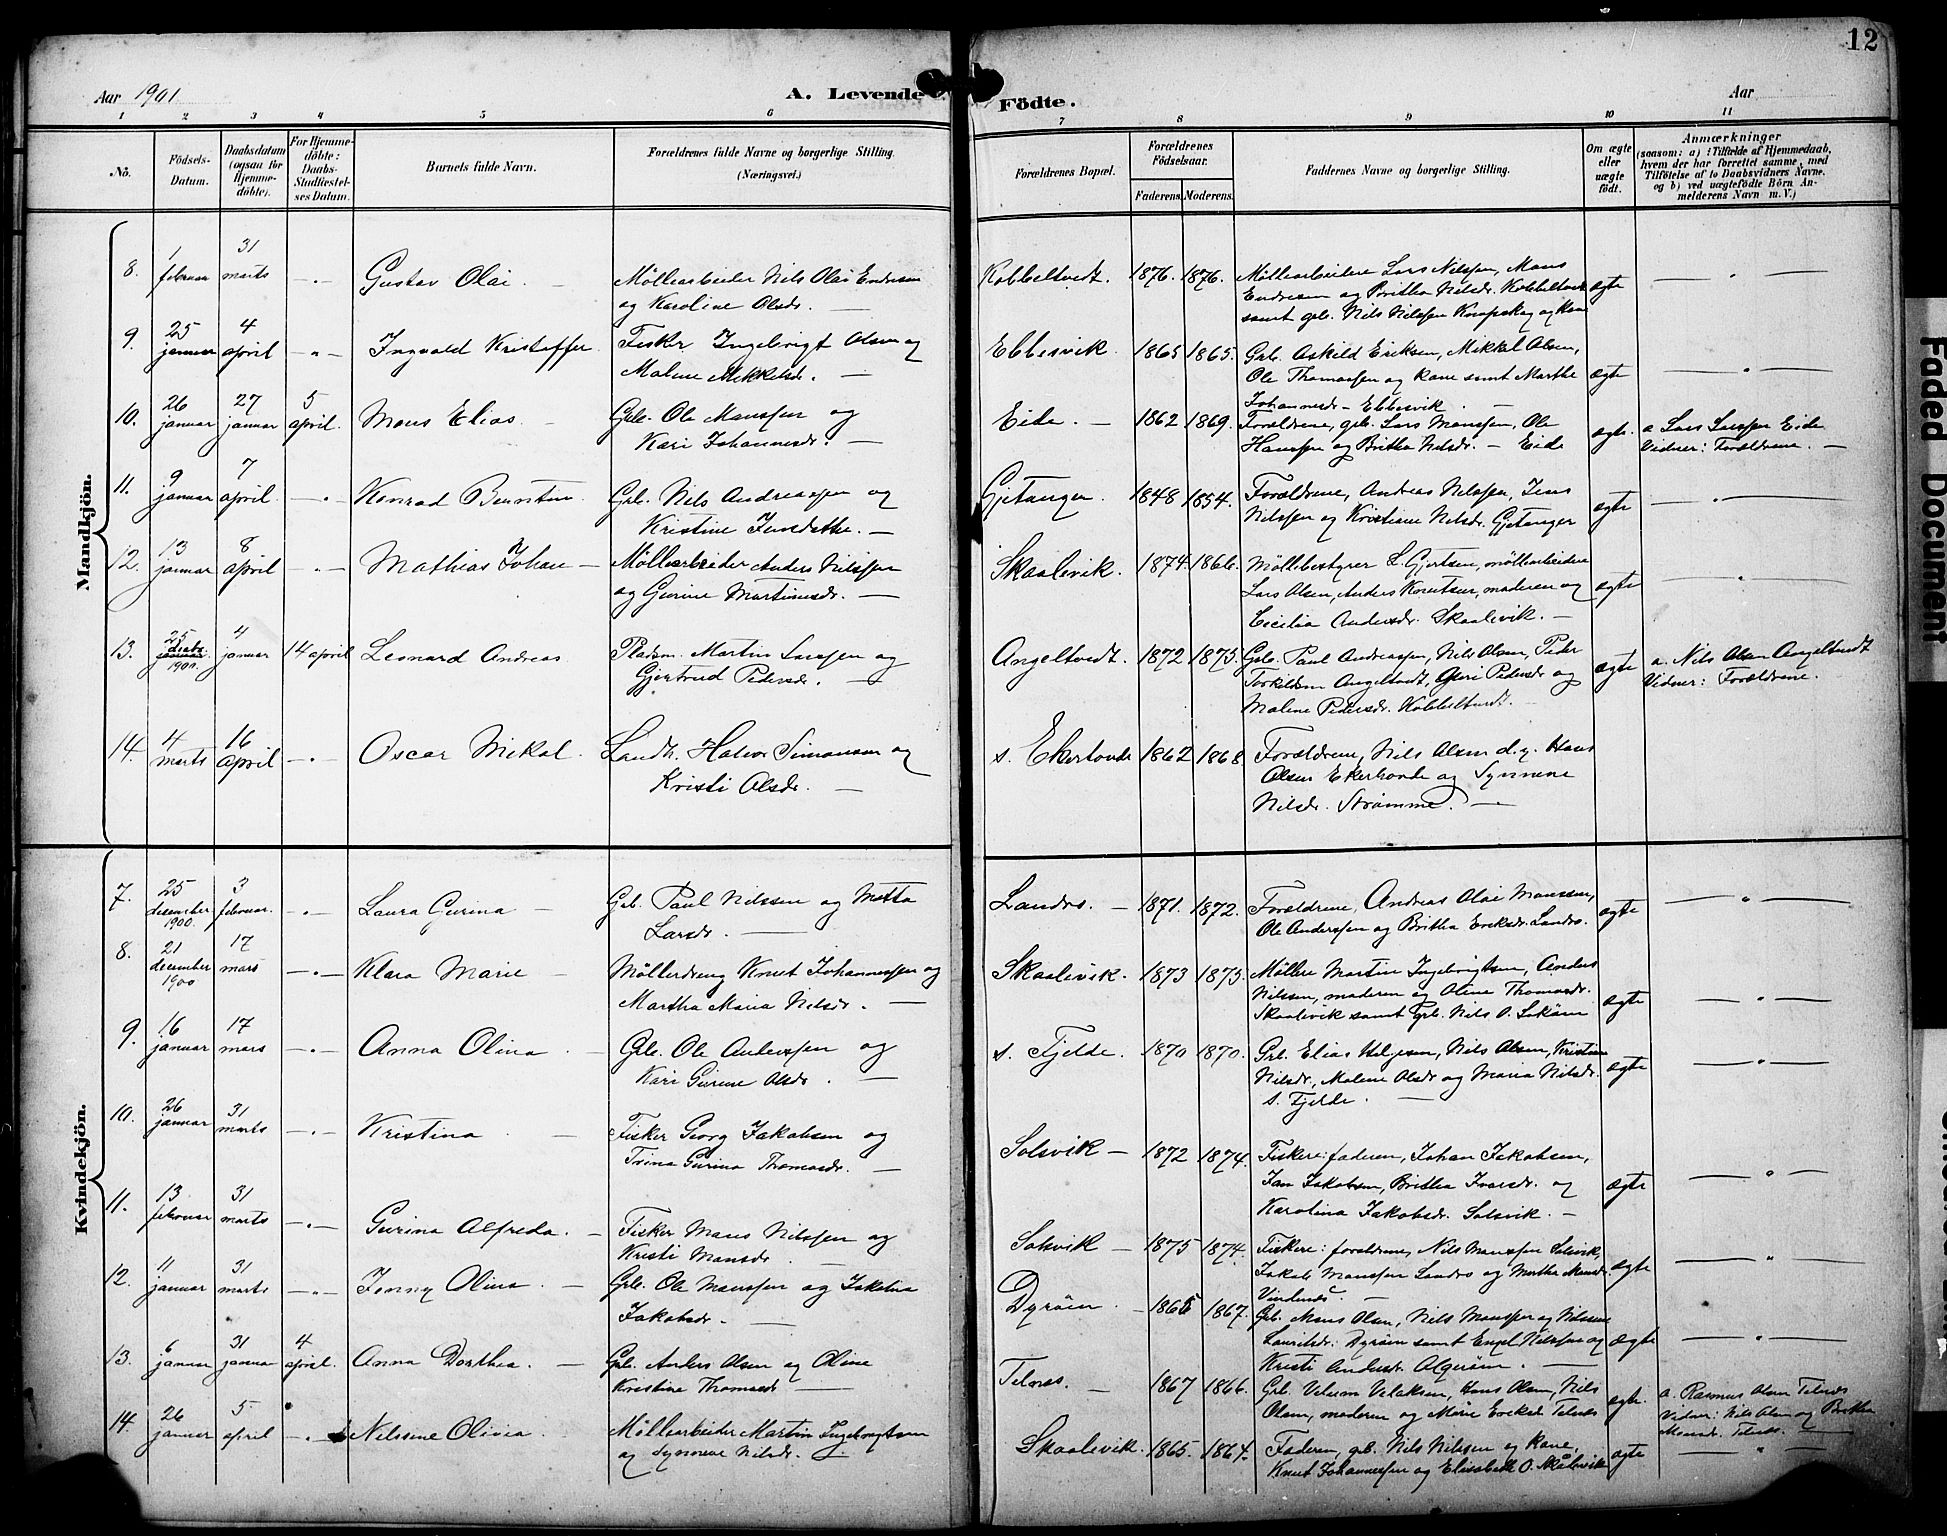 12
Aar 1901
A. Levende
Födte.
Aar
1 2 3 4 5 6 7 8 9 10 11
No.
Födsels-
Datum.
Daabsdatum
(ogsaa for
Hjemme-
döbte).
For Hjemme-
döbte:
Daabs-
Stadfæstel-
ses Datum.
Barnets fulde Navn.
Forældrenes fulde Navne og borgerlige Stilling.
(Næringsvei.)
Forældrenes Bopæl.
Forældrenes
Födselsaar.
Faderens. Moderens.
Faddernes Navne og borgerlige Stilling.
Om ægte
eller
uægte
födt.
Anmærkninger
(saasom: a) i Tilfælde af Hjemmedaab,
hvem der har forrettet samme, med
Tilföielse af to Daabsvidners Navne.
og b) ved uægtefödte Börn An-
melderens Navn m. V.)
Mandkjön.
8. 1 februar 31 marts -"- Gustav Olai. Möllearbeider Nils Olai Endresen
og Karoline Olsdr. —
Kobbeltvedt. 1876. 1876. Möllearbeidere Lars Nilssen, Mons
Endresen og Britha Nilsdr. Kobbeltvedt
samt gbr. Nils Nilssen og Kone
ægte — " —
9. 25 januar 4 april -"- Ingvald Kristoffer. Fisker Ingebrigt Olsen og
Malene Mikkelsdr. —
Ebbesvik. 1865 1865. Grb. Askild Eriksen, Mikkel Olsen,
Ole Thomassen og Kone samt Marthe
Johannesdr. Ebbesvik.
ægte — " —
10. 26 januar 27 januar 5 april. Mons Elias. Grb. Ole Monssen og
Kari Johannesdr. —
Eide. — 1862 1869. Forældrene, grb. Lars Monssen, Ole
Hanssen og Britha Nilsdr. — Eide
ægte. a Lars Larssen Eide
Vidner: Forældrene. —
11. 9 januar 7 april. -"- Konrad Berntin. Grb. Nils Andreassen og
Kristine Jensdatter. —
Gjetanger. 1848 1854. Forældrene, Andreas Nilssen, Jens
Nilssen og Kristiane Nilsdr. Gjetanger
ægte — " —
12. 13 januar 8 april -"- Mathias Johan — Möllearbeider Anders Nilssen
og Gurine Martinusdr. —
Skaalevik. 1874 1866. Möllebestyrer L. Gjertsen, möllearbeidere
Lars Olsen, Anders Knutsen, moderen og
Cecilia Andersdr. Skaalevik. —
ægte — " —
13. 25 decbr. januar 1900. 4 januar 14 april Leonard Andreas Pladsm. Martin Larssen og
Gjertrud Pedersdr. —
Angeltvedt. 1872 1873. Grb. Paul Andreassen, Nils Olsen, Peder
Torkildsen Angeltvedt, Guri Pedersdr og
Malene Pedersdr. Kobbeltvedt.
ægte a. Nils Olsen Angeltvedt
Vidner: Forældrene.
14. 4 marts 16 april -"- Oscar Mikal. Landh. Halvor Simonsen og
Kristi Olsdr. —
s. Ekerhovde 1862 1868 Forældrene, Nils Olsen d.y. Hans
Olsen Ekerhovde og Synneve
Nilsdr. Strömme. —
Kvindekjön.
7. 25 desember 1900. 3 februar. -"- Laura Gurina — Grb. Paul Nilssen og Metta
Larsdr. —
Landro. — 1871. 1872. Forældrene, Andreas Olai Monssen,
Ole Anderssen og Britha Eriksdr. Landro.
ægte — " —
8. 21 december 1900 17 mars -"- Klara Marie — Möllerdreng Knut Johannessen og
Martha Maria Nilsdr. —
Skaalevik. 1873 1873. Möller Martin Ingebrigtsen, Anders
Nilssen, moderen og Oline Thomasdr.
Skaalevik samt Grb. Nils O.
ægte — " —
9. 16 januar 17 mars -"- Anna Olina. Grb. Ole Anderssen og
Kari Gurine Olsdr. —
s. Fjelde. 1870 1870. Grb. Elias Helgesen, Nils Olsen, Kristine
Nilsdr, Malene Olsdr og Maria Nilsdr.
s. Fjelde. —
ægte — " —
10. 26 januar 31 marts -"- Kristina — Fisker Georg Jakobsen og
Trina Gurina Thomasdr. —
Solsvik — 1872 1874. Fiskere: faderen, Johan Jakobsen,
Jan Jakobsen, Britha Ivarsdr. og
Karolina Jakobsdr. Solsvik. —
ægte — " —
11. 13 februar 31 marts -"- Gurina Alfreda. — Fisker Mons Nilssen og
Kristi Monsdr. —
Solsvik — 1875 1874. Fiskere: forældrene, Nils Monssen Solsvik,
Jakob Monssen Landro og Martha Monsdr.
Vindenes. —
ægte — " —
12. 11 januar 31 marts -"- Jenny Olina. — Grb. Ole Monssen og Jakobina
Jakobsdr. —
Dyröen. — 1865 1867. Grb. Mons Olsen, Nils Monssen og Nilsine
Lauritsdr. Dyröen samt Engel Nilssen og
Kristi Andersdr. Algeröen. —
ægte — " —
13. 6 januar 31 januar 4 april. Anna Dorthea. — Grb. Anders Olsen og Oline
Kristine Thomasdr —
Telnes. — 1867 1866. Grb. Hans Olsen, Nils
Olsen, moderen og Marie Telnes
ægte. a. Rasmus Olsen Telnes
Vidner: Nils Olsen og Britha
Monsdr. Telnes.
14. 26 januar 5 april -"- Nilsine Olivia. Möllearbeider Martin Ingebrigtsen
og Synneve Nilsdr. —
Skaalevik. 1865. 1864. Faderen, grb. Nils Nilssen og Kone,
Knut Johannessen og Elisabeth O. Skålevik
ægte — " —
Faded Document